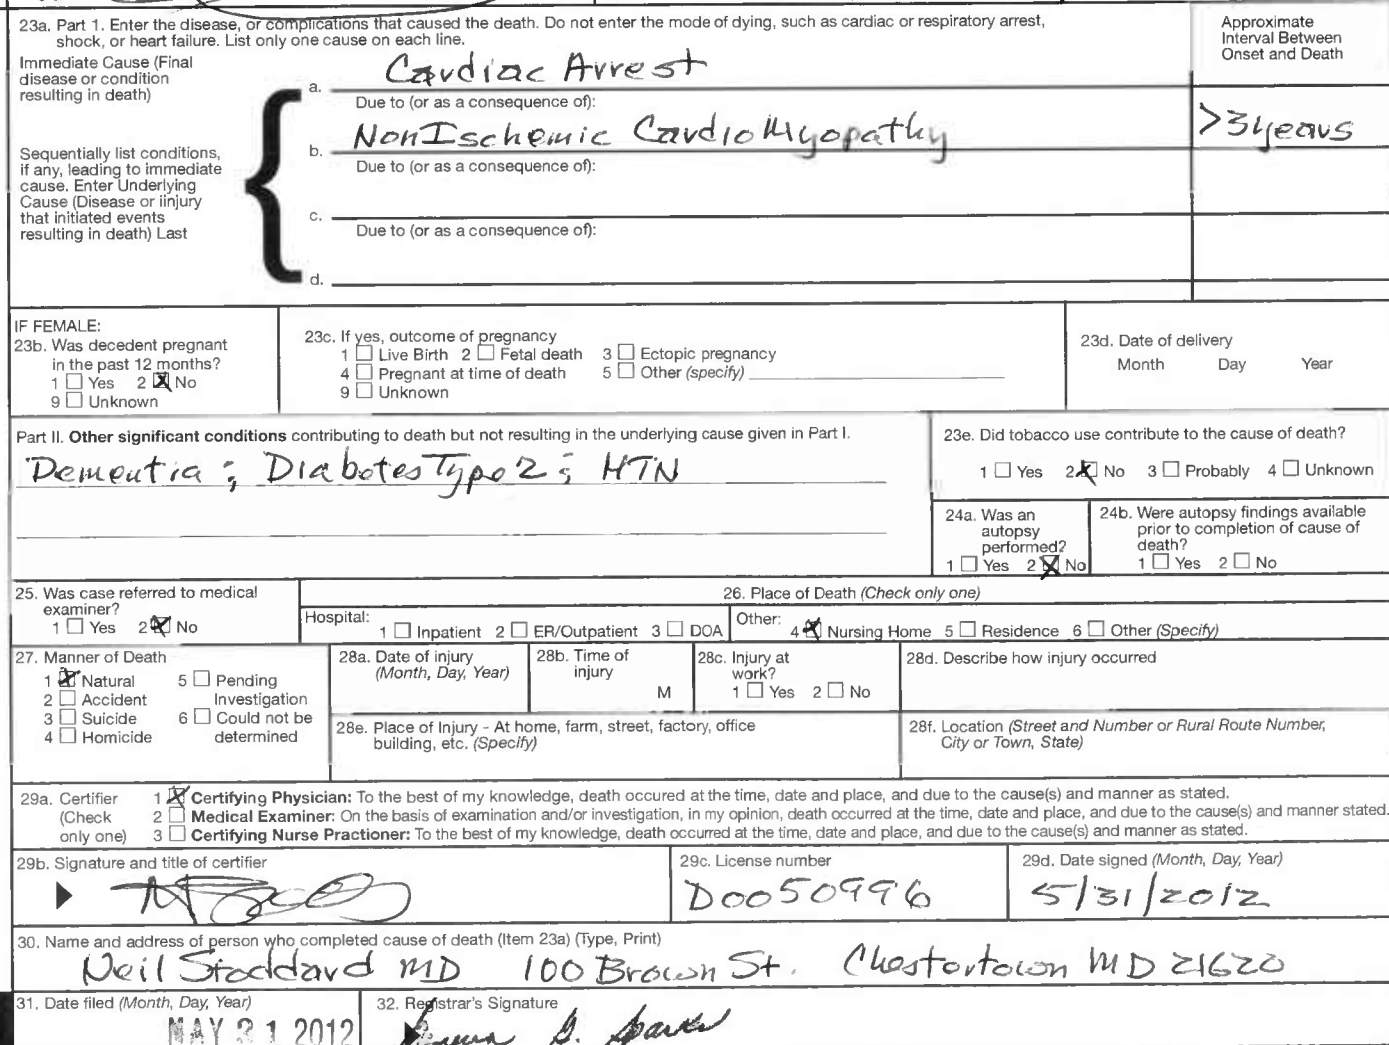 23a. Part 1. Enter the disease, or complications that caused the death. Do not enter the mode of dying, such as cardiac or respiratory arrest,
shock, or heart failure. List only one cause on each line.
Approximate
Interval Between
Onset and Death
Immediate Cause (Final
disease or condition
resulting in death)
a. Cardiac Arrest
Due to (or as a consequence of):
b. NonIschemic CardioMyopathy
>3years
Due to (or as a consequence of):
Sequentially list conditions,
if any, leading to immediate
cause. Enter Underlying
Cause (Disease or iinjury
that initiated events
resulting in death) Last
c.
Due to (or as a consequence of):
d.
IF FEMALE:
23b. Was decedent pregnant
in the past 12 months?
1 ☐ Yes 2 ☒ No
9 ☐ Unknown
23c. If yes, outcome of pregnancy
1 ☐ Live Birth 2 ☐ Fetal death 3 ☐ Ectopic pregnancy
4 ☐ Pregnant at time of death 5 ☐ Other (specify)
9 ☐ Unknown
23d. Date of delivery
Month Day Year
Part II. Other significant conditions contributing to death but not resulting in the underlying cause given in Part I.
Dementia; Diabetes Type 2; HTN
23e. Did tobacco use contribute to the cause of death?
1 ☐ Yes 2 ☒ No 3 ☐ Probably 4 ☐ Unknown
24a. Was an
autopsy
performed?
1 ☐ Yes 2 ☒ No
24b. Were autopsy findings available
prior to completion of cause of
death?
1 ☐ Yes 2 ☐ No
25. Was case referred to medical
examiner?
1 ☐ Yes 2 ☒ No
26. Place of Death (Check only one)
Hospital: 1 ☐ Inpatient 2 ☐ ER/Outpatient 3 ☐ DOA
Other: 4 ☒ Nursing Home 5 ☐ Residence 6 ☐ Other (Specify)
27. Manner of Death
1 ☒ Natural 5 ☐ Pending
2 ☐ Accident Investigation
3 ☐ Suicide 6 ☐ Could not be
4 ☐ Homicide determined
28a. Date of injury
(Month, Day, Year)
28b. Time of
injury
M
28c. Injury at
work?
1 ☐ Yes 2 ☐ No
28d. Describe how injury occurred
28e. Place of Injury - At home, farm, street, factory, office
building, etc. (Specify)
28f. Location (Street and Number or Rural Route Number,
City or Town, State)
29a. Certifier
(Check
only one)
1 ☒ Certifying Physician: To the best of my knowledge, death occured at the time, date and place, and due to the cause(s) and manner as stated.
2 ☐ Medical Examiner: On the basis of examination and/or investigation, in my opinion, death occurred at the time, date and place, and due to the cause(s) and manner stated.
3 ☐ Certifying Nurse Practioner: To the best of my knowledge, death occurred at the time, date and place, and due to the cause(s) and manner as stated.
29b. Signature and title of certifier
29c. License number
D0050996
29d. Date signed (Month, Day, Year)
5/31/2012
30. Name and address of person who completed cause of death (Item 23a) (Type, Print)
Neil Stoddard MD 100 Brown St. Chestertown MD 21620
31. Date filed (Month, Day, Year)
MAY 31 2012
32. Registrar's Signature